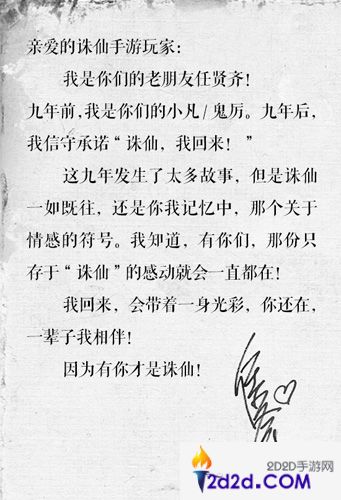 亲爱的诛仙手游玩家：
我是你们的老朋友任贤齐！
九年前，我是你们的小凡/鬼厉。九年后，
我信守承诺“诛仙，我回来！”
这九年发生了太多故事，但是诛仙
一如既往，还是你我记忆中，那个关于
情感的符号。我知道，有你们，那份只
存于“诛仙”的感动就会一直都在！
我回来，会带着一身光彩，你还在，
一辈子我相伴！
因为有你才是诛仙！
2D2D手游网
2d2d.COM